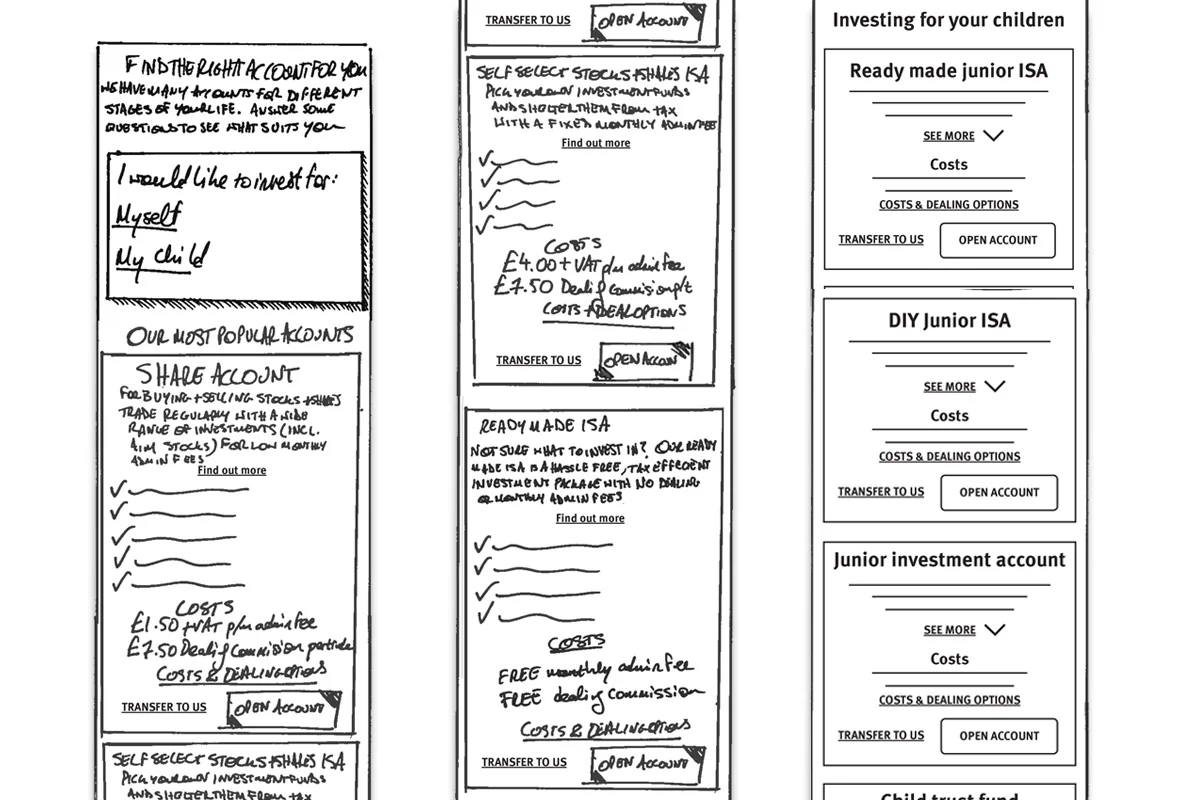 FIND THE RIGHT ACCOUNT FOR YOU
WE HAVE MANY ACCOUNTS FOR DIFFERENT
STAGES OF YOUR LIFE. ANSWER SOME
QUESTIONS TO SEE WHAT SUITS YOU
I would like to invest for:
Myself
My child
OUR MOST POPULAR ACCOUNTS
SHARE ACCOUNT
FOR BUYING + SELLING STOCKS + SHARES
TRADE REGULARLY WITH A WIDE
RANGE OF INVESTMENTS (INCL.
AIM STOCKS) FOR LOW MONTHLY
ADMIN FEES
Find out more
COSTS
£1.50 + VAT p/m admin fee
£7.50 Dealing Commission per trade
COSTS & DEALING OPTIONS
TRANSFER TO US
OPEN ACCOUNT
SELF SELECT STOCKS + SHARES ISA
PICK YOUR OWN INVESTMENT FUNDS
AND SHOLTER THEM FROM TAX
TRANSFER TO US
OPEN ACCOUNT
SELF SELECT STOCKS + SHARES ISA
PICK YOUR OWN INVESTMENT FUNDS
AND SHOLTER THEM FROM TAX
WITH A FIXED MONTHLY ADMIN FEE
Find out more
COSTS
£4.00 + VAT p/m admin fee
£7.50 Dealing Commision p/t
COSTS + DEAL OPTIONS
TRANSFER TO US
OPEN ACCOUN
READY MADE ISA
NOT SURE WHAT TO INVEST IN? OUR READY
MADE ISA IS A HASSLE FREE, TAX EFFECIENT
INVESTMENT PACKAGE WITH NO DEALING
OR MONTHLY ADMIN FEES
Find out more
COSTS
FREE monthly admin fee
FREE dealing commission
COSTS & DEALING OPTIONS
TRANSFER TO US
OPEN ACCOUNT
Investing for your children
Ready made junior ISA
SEE MORE
Costs
COSTS & DEALING OPTIONS
TRANSFER TO US
OPEN ACCOUNT
DIY Junior ISA
SEE MORE
Costs
COSTS & DEALING OPTIONS
TRANSFER TO US
OPEN ACCOUNT
Junior investment account
SEE MORE
Costs
COSTS & DEALING OPTIONS
TRANSFER TO US
OPEN ACCOUNT
Child trust fund